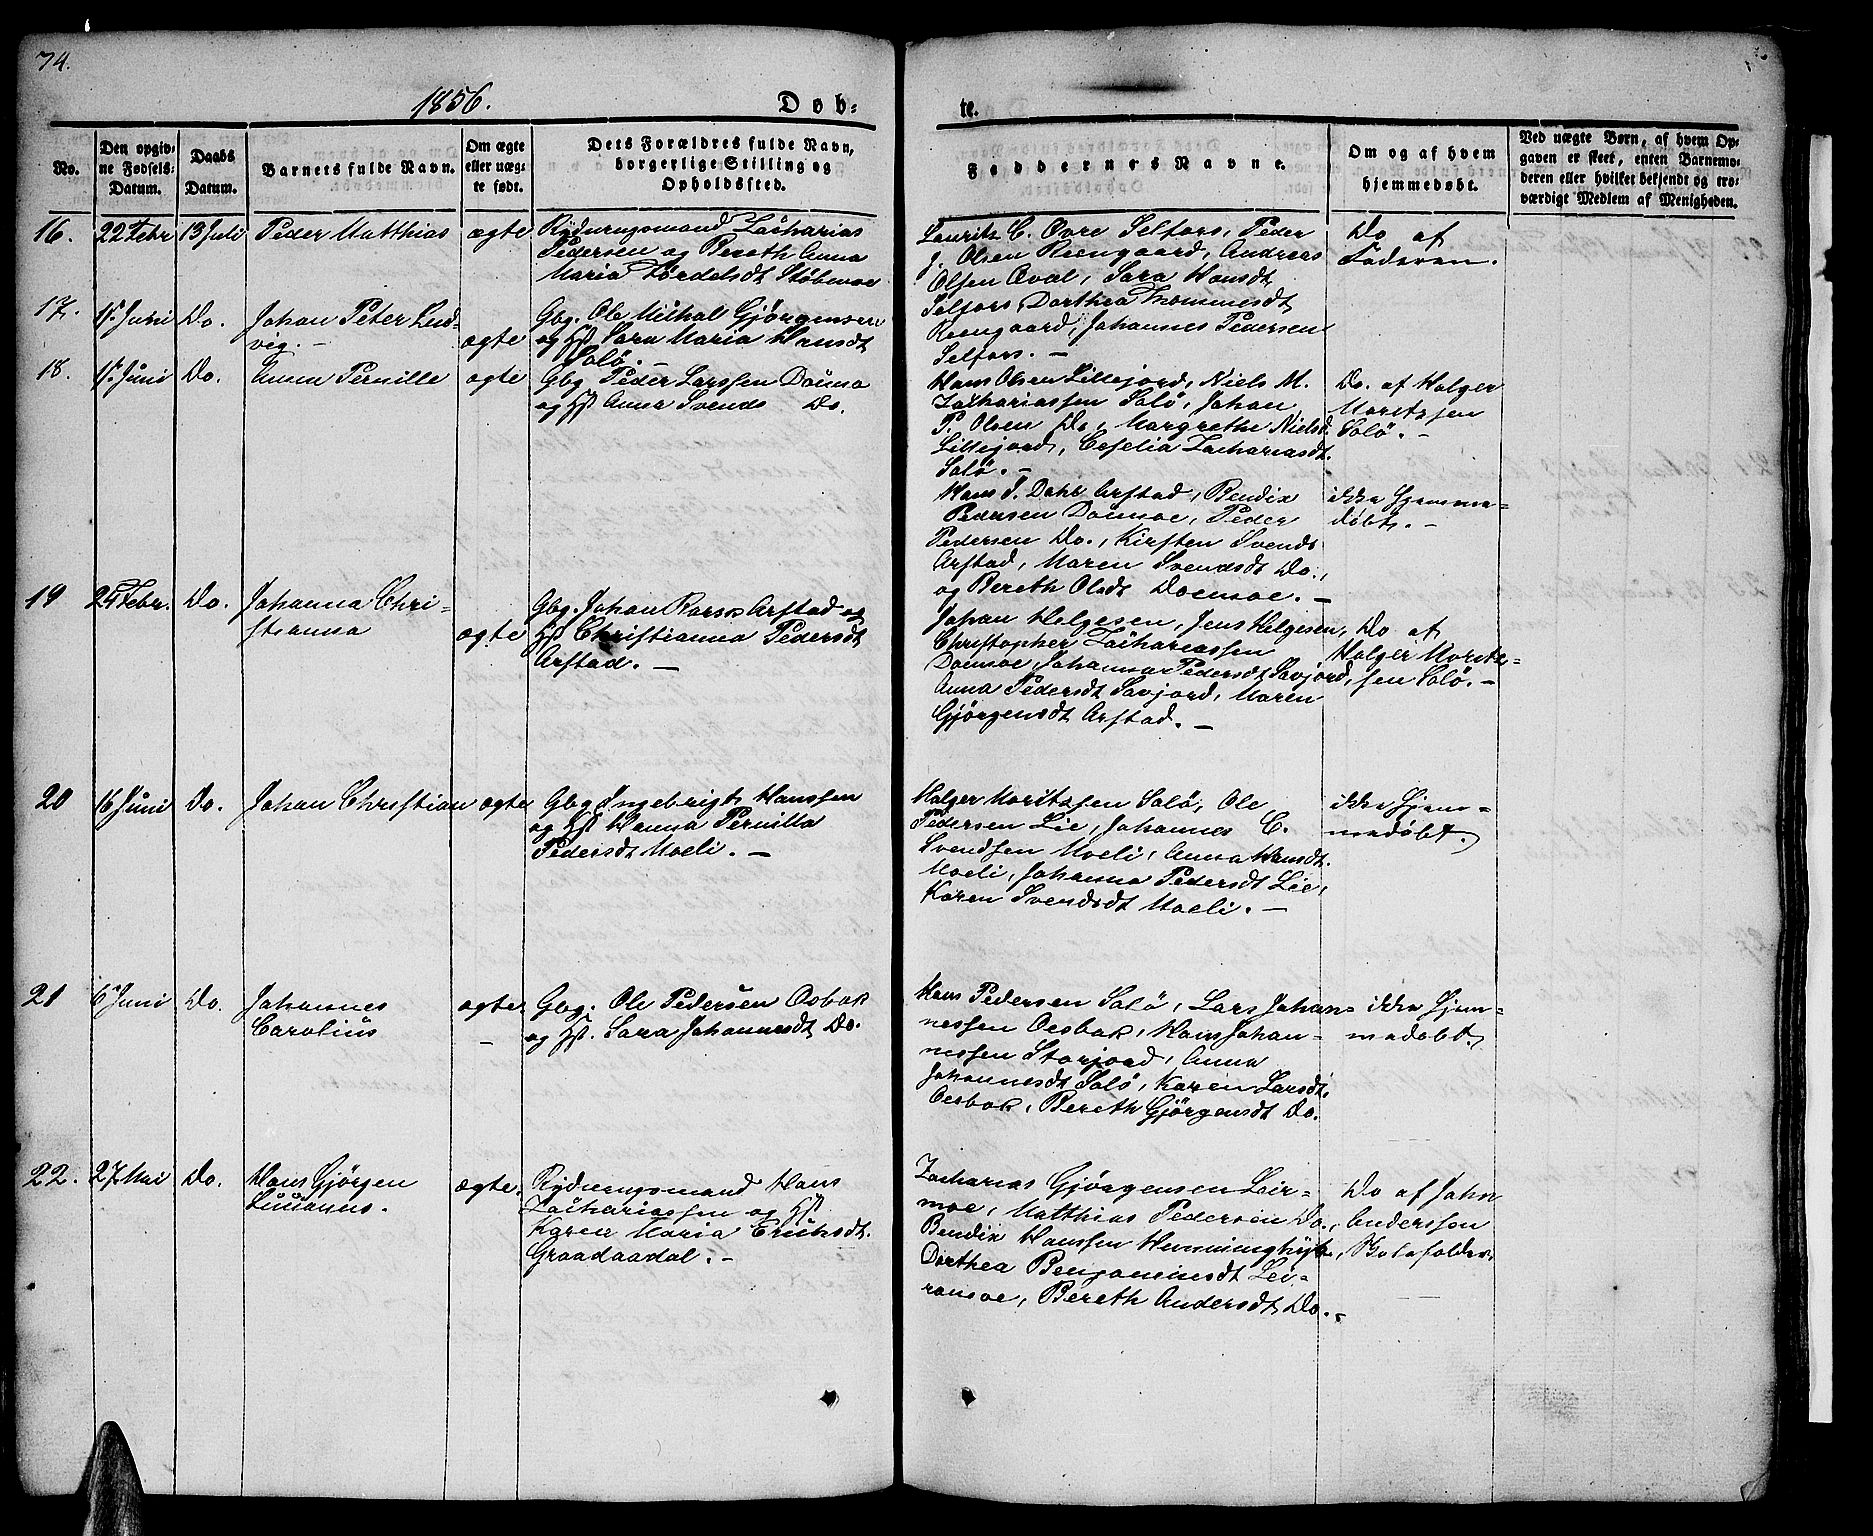 74.
1856.
Døb-
te.
No.
Den opgiv-
ne Fødsels-
Datum.
Daabs
Datum.
Barnets fulde Navn.
Om ægte
eller uæg-
te født.
Dets Forældres fulde Navn,
borgerlige Stilling og
Opholdssted.
Faddernes Navne.
Om og af hvem
hjemmedøbt.
Ved uægte Børn, af hvem Op-
gaven er skeet, enten Barnemo-
deren eller hvilket bekjendt og tro-
værdigt Medlem af Menigheden.
16. 22 Febr 13 Juli Peder Matthias ægte
Rydningsmand Zacharias
Pedersen og Bereth Anna
Maria Tordelsdt
Laurits C. Øvre Selfors, Peder
J. Olsen Reengaard, Andreas
Olsen Øval, Sara Hansdt
Selfors, Dorthea Thommesdt
Reengaard, Johannes Pedersen
Selfors. -
Do af
Faderen.
17. Juni Do. Johan Peter Lud-
vig. -
ægte
Gbg. Ole Mikal Gjørgensen
og Hst Sara Maria Hansdt
Solø. -
Hans Olsen Lillejord, Niels M.
Zachariassen Solø, Johan
P. Olsen Do, Margrethe Nielsd.
Lillejord, Ceselia Zachariasdt.
Solø. -
Do. af Holger
Moritssen
Solø. -
18. Juni Do. Anna Pernille ægte
Gbg. Peder Larssen Doimo
og Hst Anna Svends Do.
Hans T. Dahl Arstad, Bendix
Pedersen Doimoe, Peder
Pedersen Do., Kirsten Svends
Arstad, Maren Svendsdt Do.,
og Bereth Olsdt Doemoe. -
ikke hjemme-
døbt. -
19 25 Febr. Do. Johanna Chri-
stianna
ægte
Gbg. Johan Arstad og
Hst Christianna Pedersdt
Arstad. -
Johan Helgesen, Jens Helgesen,
Christopher Zachariassen
Doemoe, Johanna Pedersdt Savjord,
Anna Pedersdt Savjord, Maren
Gjørgensdt Arstad. -
Do af
Holger Morits-
sen Solø. -
20 16 Juni Do. Johan Christian ægte
Gbg Ingebrigt Hanssen
og Hst Hanna Pernilla
Pedersdt Moeli. -
Holger Moritssen Solø, Ole
Pedersen Lie, Johannes C.
Svendsen Moeli, Anna Hansdt.
Moeli, Johanna Pedersdt Lie,
Karen Svendsdt Moeli. -
ikke hjem-
medøbt.
21 6 Juni Do. Johannes
Carolius
ægte.
-
Gbg. Ole Pedersen Osbak
og Hst. Sara Johannesdt Do.
Hans Pedersen Solø, Lars Johan-
nessen Oesbak, Hans Johan-
nessen Storjord, Anna
Johannesdt Solø, Karen Larsdt.
Oesbak, Bereth Gjørgensdt Do.
ikke hjem-
medøbt.
22. 27 Mai Do. Hans Gjørgen
ægte.
Rydningsmand Hans
Zachariassen og Hst
Karen Maria Erichsdt.
Graadaadal. -
Zacharias Gjørgensen Leir-
moe, Matthias Pedersen Do.,
Bendix Hanssen
Dorthea Benjaminsdt Lei-
ramoe, Bereth Andersdt Do. -
Do af John
Anderssen